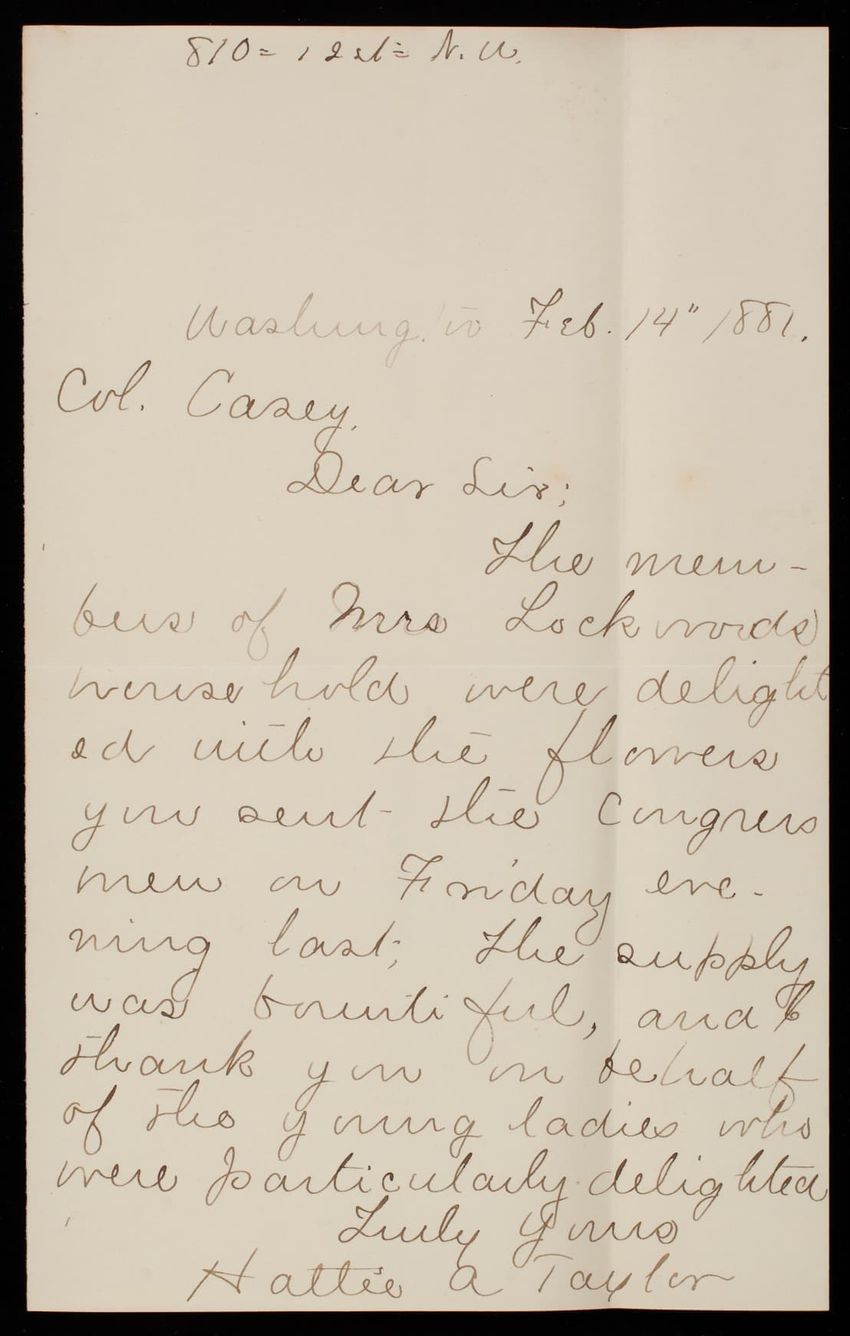 810 = 12 st = N. W.
Washing'to Feb. 14" 1881.
Col. Casey,
Dear Sir;
The mem-
bers of Mrs Lockwoods
household were delight
ed with the flowers
you sent the Congress
men on Friday eve-
ning last; The supply
was bountiful, and I
thank you on behalf
of the young ladies who
were particularly delighted
Truly yours
Hattie A Taylor